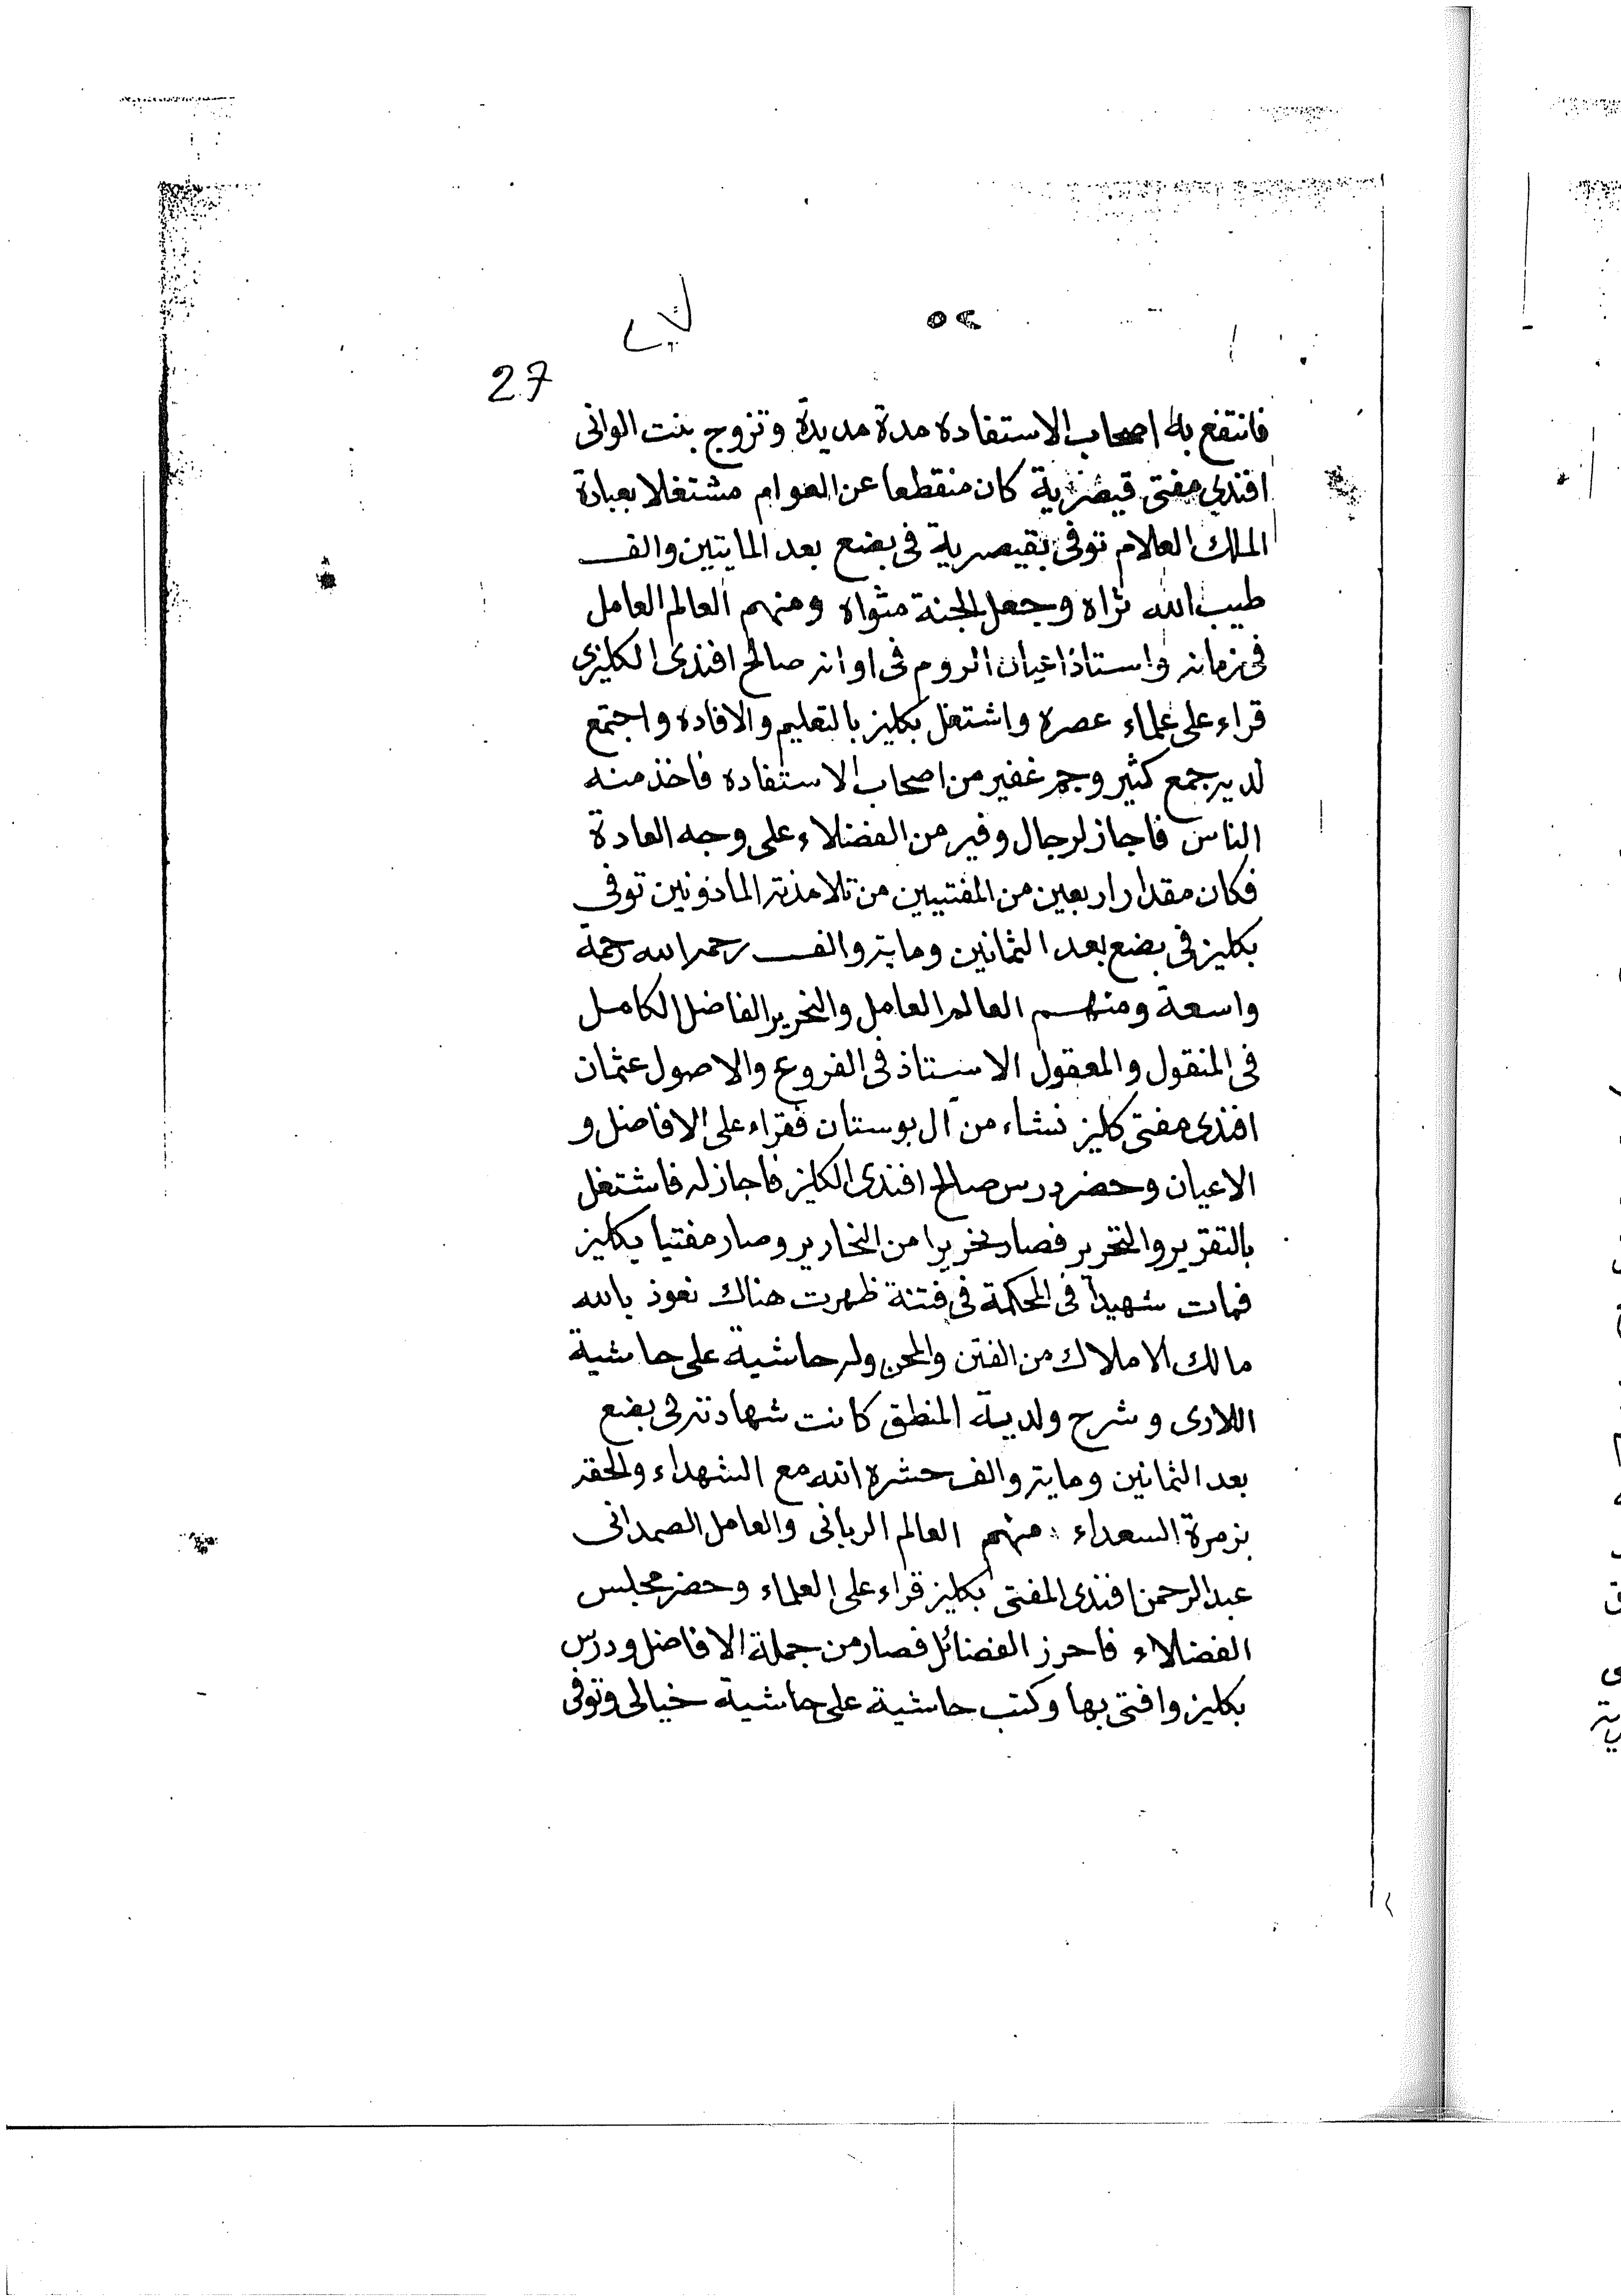 ٥٢
27
فانتفع به اصحاب الاستفاده مدة مديدة وتزوج بنت الوانى
افندى مفتى قيصرية كان منقطعا عن العوام مشتغلا بعبادة
الملك العلام توفى بقيصرية فى بضع بعد المايتين والف
طيب الله ثراه وجعل الجنة مثواه ومنهم العالم العامل
فى زمانه واستاذ اعيان الروم فى اوانه صالح افندى الكليزى
قراء على علماء عصره واشتغل بكليز بالتعليم والافاده واجتمع
لديه جمع كثير وجم غفير من اصحاب الاستفاده فاخذ منه
الناس فاجاز لرجال وفير من الفضلاء على وجه العادة
فكان مقدار اربعين من المفتيين من تلامذته الماذونين توفى
بكليز فى بضع بعد الثمانين ومايه والف رحمه الله رحمة
واسعة ومنهم العالم العامل والنحرير الفاضل الكامل
فى المنقول والمعقول الاستاذ فى الفروع والاصول عثمان
افندى مفتى كليز نشاء من آل بوستان فقراء على الافاضل و
الاعيان وحضر درس صالح افندى الكلز فاجاز له فاشتغل
بالتقرير والتحرير فصار نحريرا من النحارير وصار مفتيا بكليز
فمات شهيدا فى المحكمة فى فتنة ظهرت هناك نعوذ بالله
مالك الاملاك من الفتن والمحن وله حاشية على حاشية
اللارى وشرح ولدية المنطق كانت شهادته فى بضع
بعد الثمانين ومايه والف حشره الله مع الشهداء والحقه
بزمرة السعداء منهم العالم الربانى والعامل الصمدانى
عبد الرحمن افندى المفتى بكليز قراء على العلماء وحضر مجلس
الفضلاء فاحرز الفضائل فصار من جملة الافاضل ودرس
بكليز وافتى بها وكتب حاشية على حاشية خيالى وتوفى